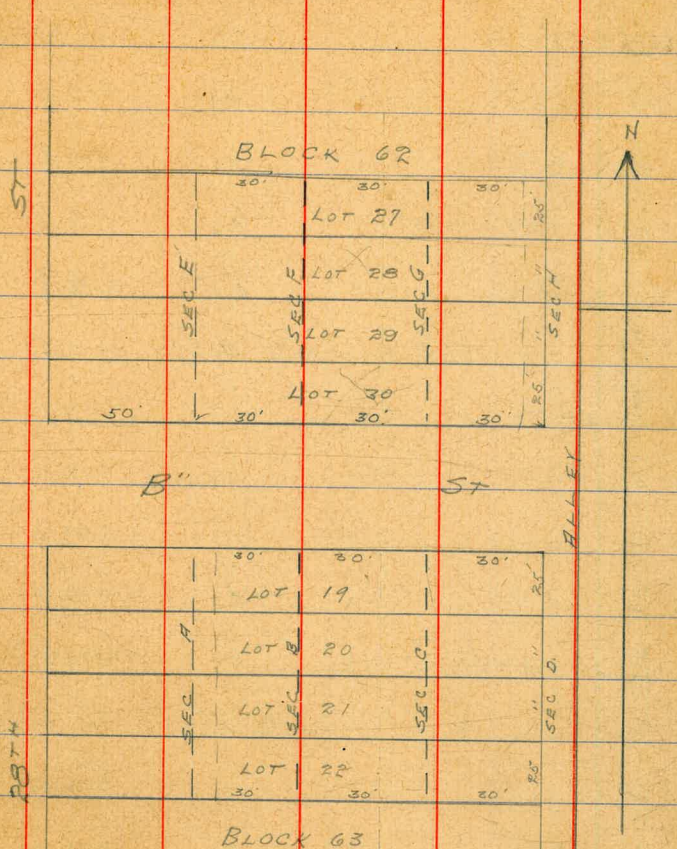 BLOCK 62
N
ST
30' 30' 30'
LOT 27
25'
LOT 28
"
SEC E
SEC F
SEC G
SEC H
LOT 29
"
LOT 30
25'
50' 30' 30' 30'
B" ST
ALLEY
30' 30' 30'
LOT 19
25'
LOT 20
"
SEC A
SEC B
SEC C
SEC D.
LOT 21
"
LOT 22
25'
30' 30' 20'
28TH
BLOCK 63